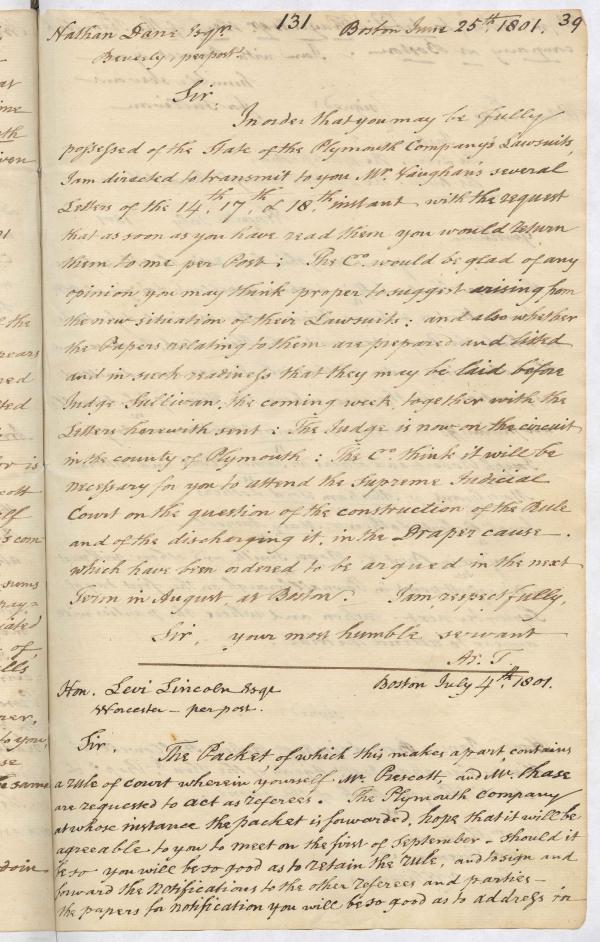 Nathan Dane Esqr. 131 Boston June 25th. 1801. 39
Beverly, per post.
Sir.
In order that you may be fully
possessed of the State of the Plymouth Company's Lawsuits,
I am directed to transmit to you Mr. Vaughan's several
Letters of the 14th. 17th. & 18th. instant with the request
that as soon as you have read them you would return
them to me per Post: The Co. would be glad of any
opinion you may think proper to suggest arising from
the new situation of their Lawsuits: and also whether
the Papers relating to them are prepared and
and in such readiness that they may be laid before
Judge Sullivan, the coming week, together with the
Letters herewith sent: The Judge is now on the circuit
in the county of Plymouth: The Co. think it will be
necessary for you to attend the Supreme Judicial
Court on the question of the construction of the Rule
and of the discharging it, in the Draper cause.
which have been ordered to be argued in the next
Term in August, at Boston. I am, respectfully,
Sir, your most humble servant
Ar. T.
Hon. Levi Lincoln Esqr Boston July 4th. 1801.
Worcester - per post.
Sir. The Packet of which this makes a part contains
a rule of court wherein yourself Mr. Prescott, and Mr. Chase
are requested to act as referees. The Plymouth company
at whose instance the packet is forwarded, hope that it will be
agreeable to you to meet on the first of September - should it
be so you will be so good as to retain the rule, and to sign and
forward the notifications to the other referees and parties -
the papers for notification you will be so good as to address to